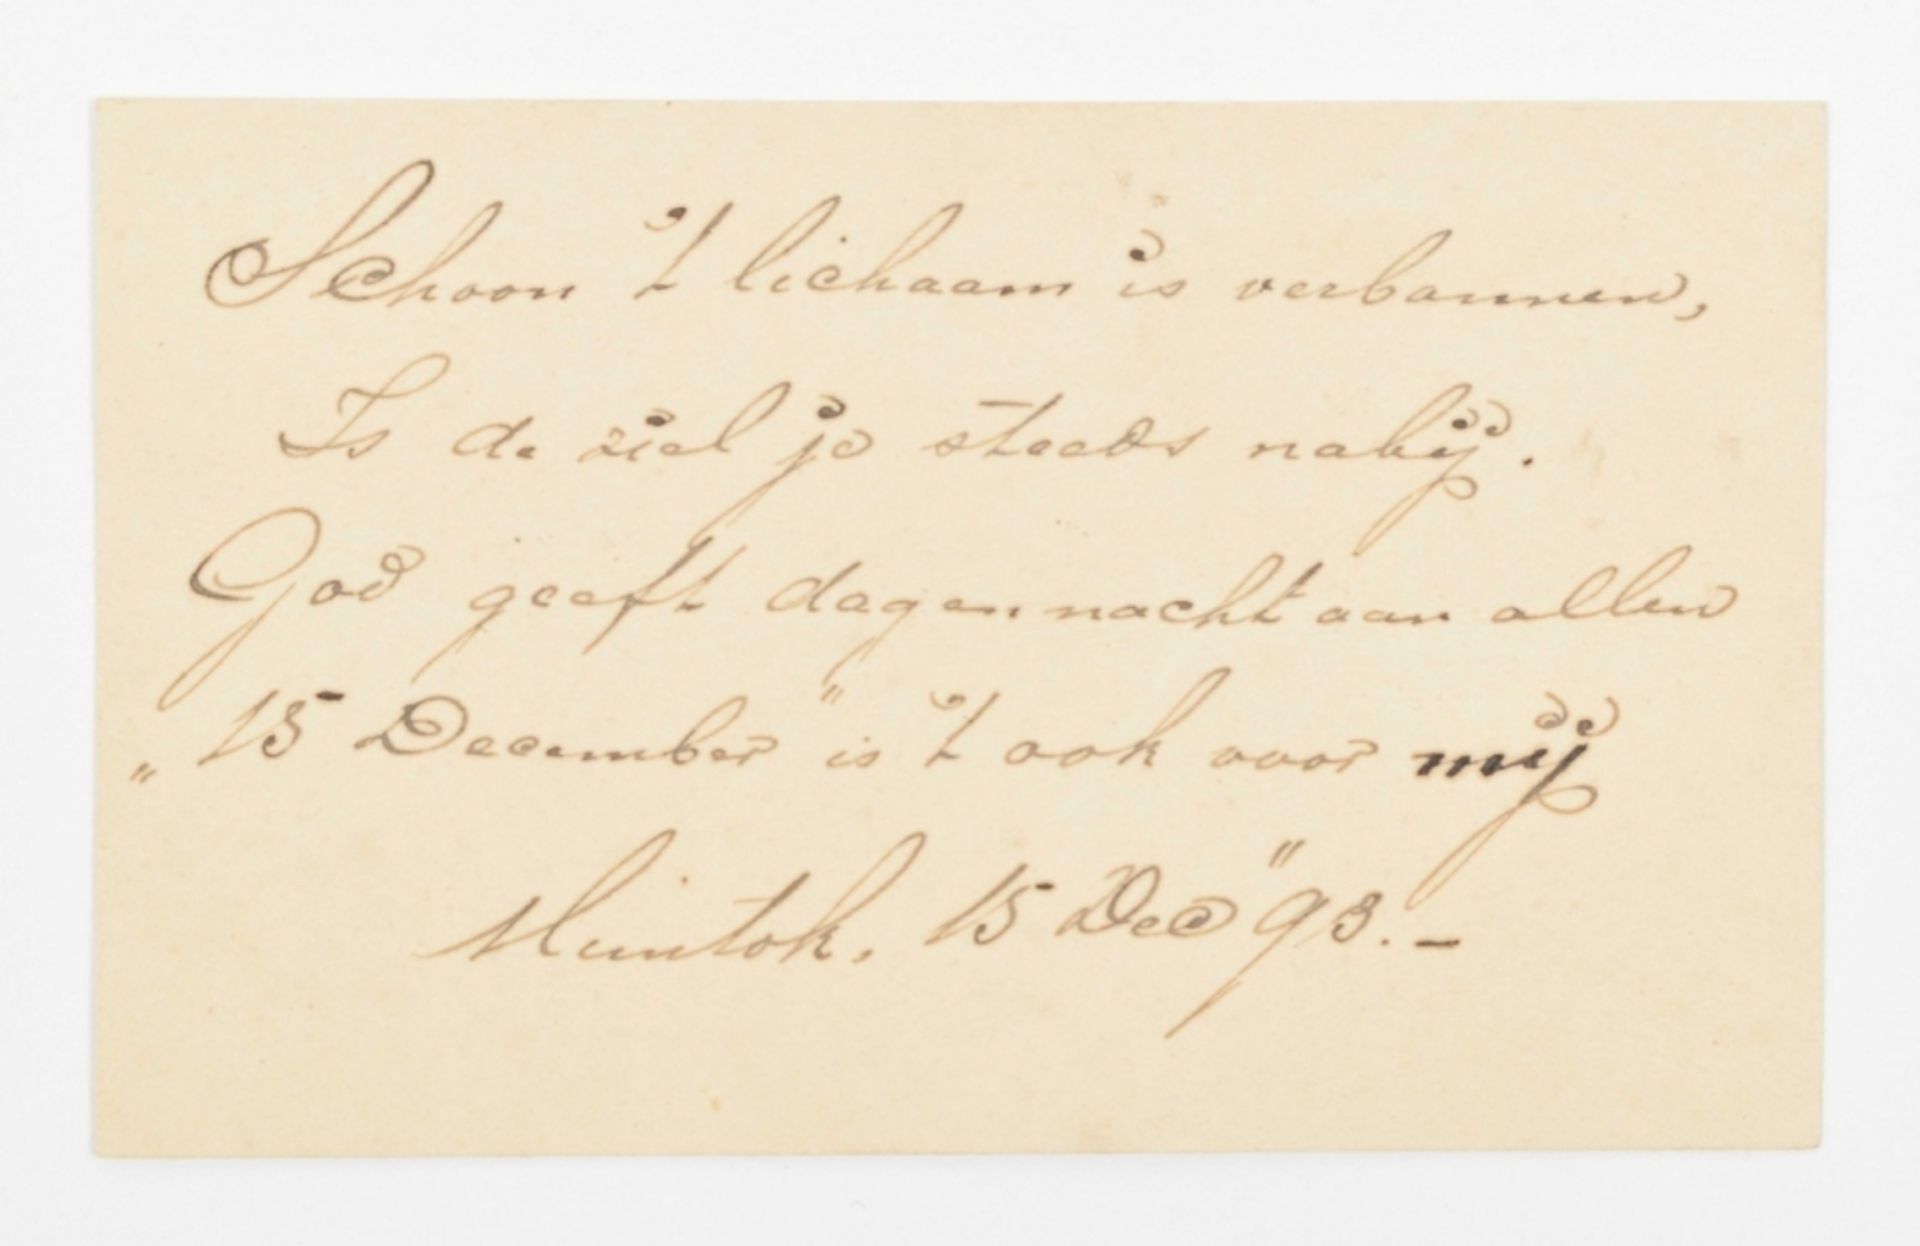 Schoon 't lichaam is verbannen,
Is de ziel je steeds nabij.
God geeft dag en nacht aan allen
„15 December" is 't ook voor mij
Muntok, 15 Dec "93.-